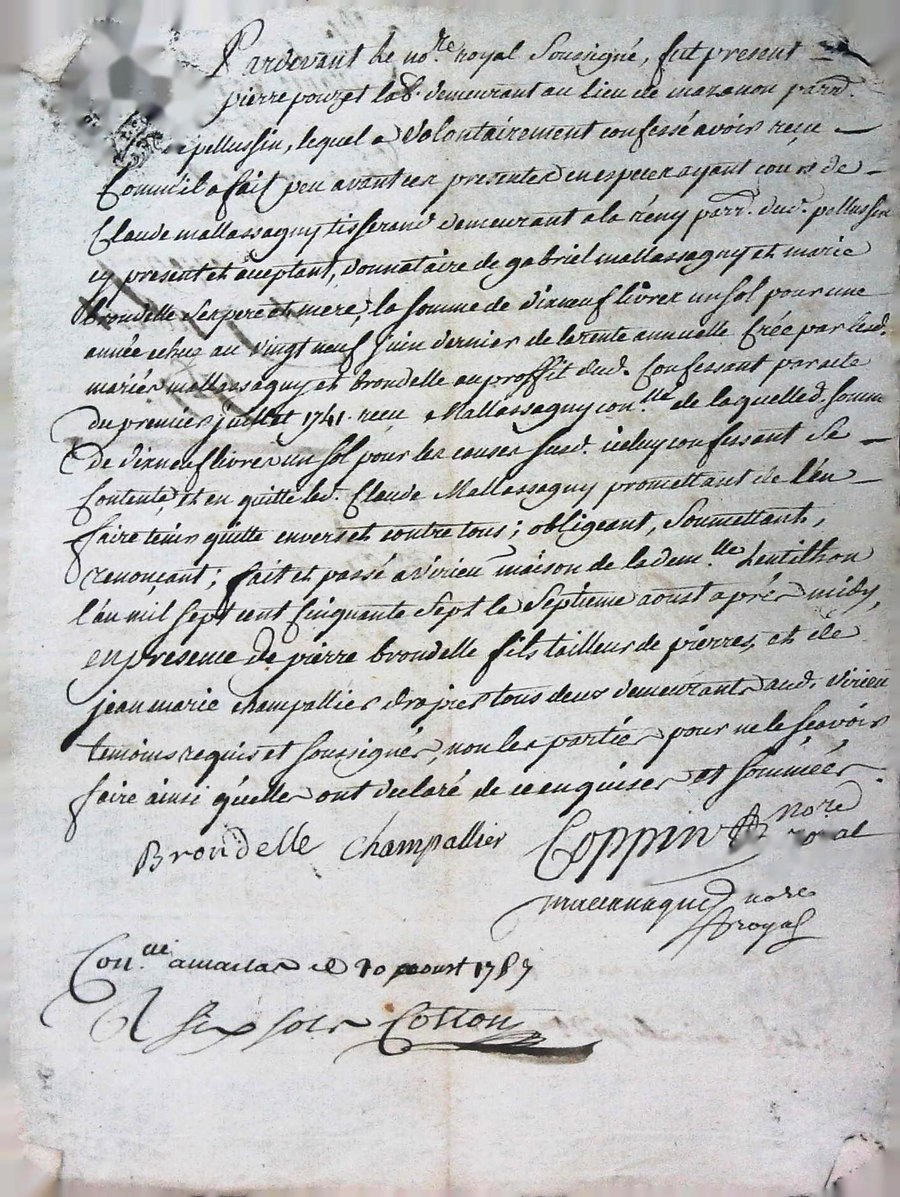 Pardevant le no.re royal Soussigné, fut present
pierre pouzet lab. demeurant au lieu de mazanon parr.
pellussin, lequel a volontairement confessé avoir reçu
Comme il a fait peu avant ces presentes en especes ayant cours de
Claude mallassagny tisserand demeurant a la rény parr. dud. pellussin
cy present et aceptant, donnataire de gabriel mallassagny et marie
brondelle ses pere et mere, la somme de dixneuf livres un sol pour une
année echue au vingt neuf juin dernier de la rente annuelle Créé par lesd.
mariés mallassagny et brondelle au proffit dud. Confessant par acte
du premier juillet 1741. reçu Mallassagny con.lle de laquelle d. somme
de dixneuf livres un sol pour les causes susd. iceluy confessant se
Contente, et en quitte led. Claude Mallassagny promettant de l'en
faire tenir quitte envers et contre tous; obligeant, Soumettant,
renonçant; fait et passé a virieu maison de la dem.lle Lentilhon
l'an mil sept cent Cinquante Sept le Septieme aoust aprés midy,
en presence de pierre brondelle fils tailleur de pierres, et de
jean marie champallier drapier tous deux demeurants aud. virieu
temoins requis et soussignés, non les parties pour ne le sçavoir
faire ainsi qu'elles ont declaré de ce enquises et sommées
Brondelle Champallier Coppin no.re royal
no.re royal
Con.lle a maclas le 10 aoust 1757
R six sols Cotton